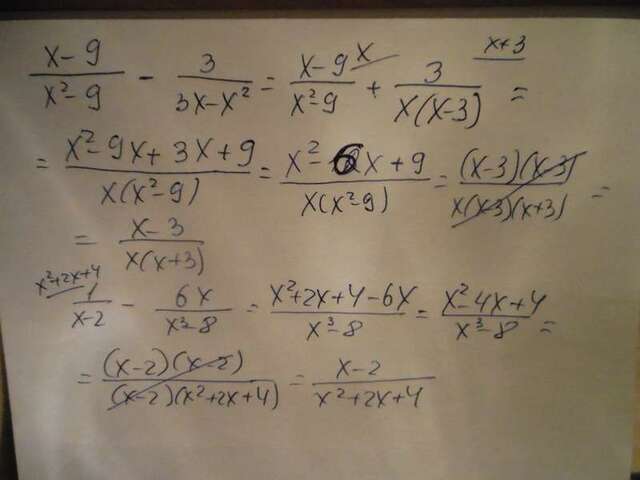 (x-9)/(x²-9) - 3/(3x-x²) = (x-9)/(x²-9) ^x + 3/(x(x-3)) ^x+3 =
= (x²-9x+3x+9)/(x(x²-9)) = (x²-6x+9)/(x(x²-9)) = (x-3)(x-3)/(x(x-3)(x+3)) =
= (x-3)/(x(x+3))
^x²+2x+4 1/(x-2) - 6x/(x³-8) = (x²+2x+4-6x)/(x³-8) = (x²-4x+4)/(x³-8) =
= (x-2)(x-2)/((x-2)(x²+2x+4)) = (x-2)/(x²+2x+4)